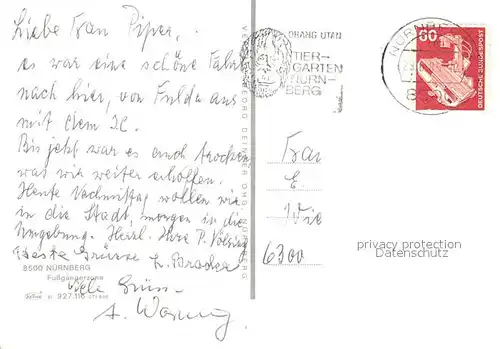 Liebe Frau Piper,
es war eine schöne Fahrt
nach hier, von Fulda aus
mit dem IC.
Bis jetzt war es auch trocken
was wir weiter erhoffen.
Heute Nachmittag wollen wir
in die Stadt, morgen in die
Umgebung. Herzl. Ihre P.
Beste Grüsse
8500 NÜRNBERG
Fußgängerzone
Viele Grüsse
927.116
A.
VERLAG GEORG DEIFER OHG NÜRNBERG
ORANG UTAN
TIER-
GARTEN
NÜRN-
BERG
NÜRNBERG
60
DEUTSCHE BUNDESPOST
Frau
E
Wie
6300
privacy protection
Datenschutz